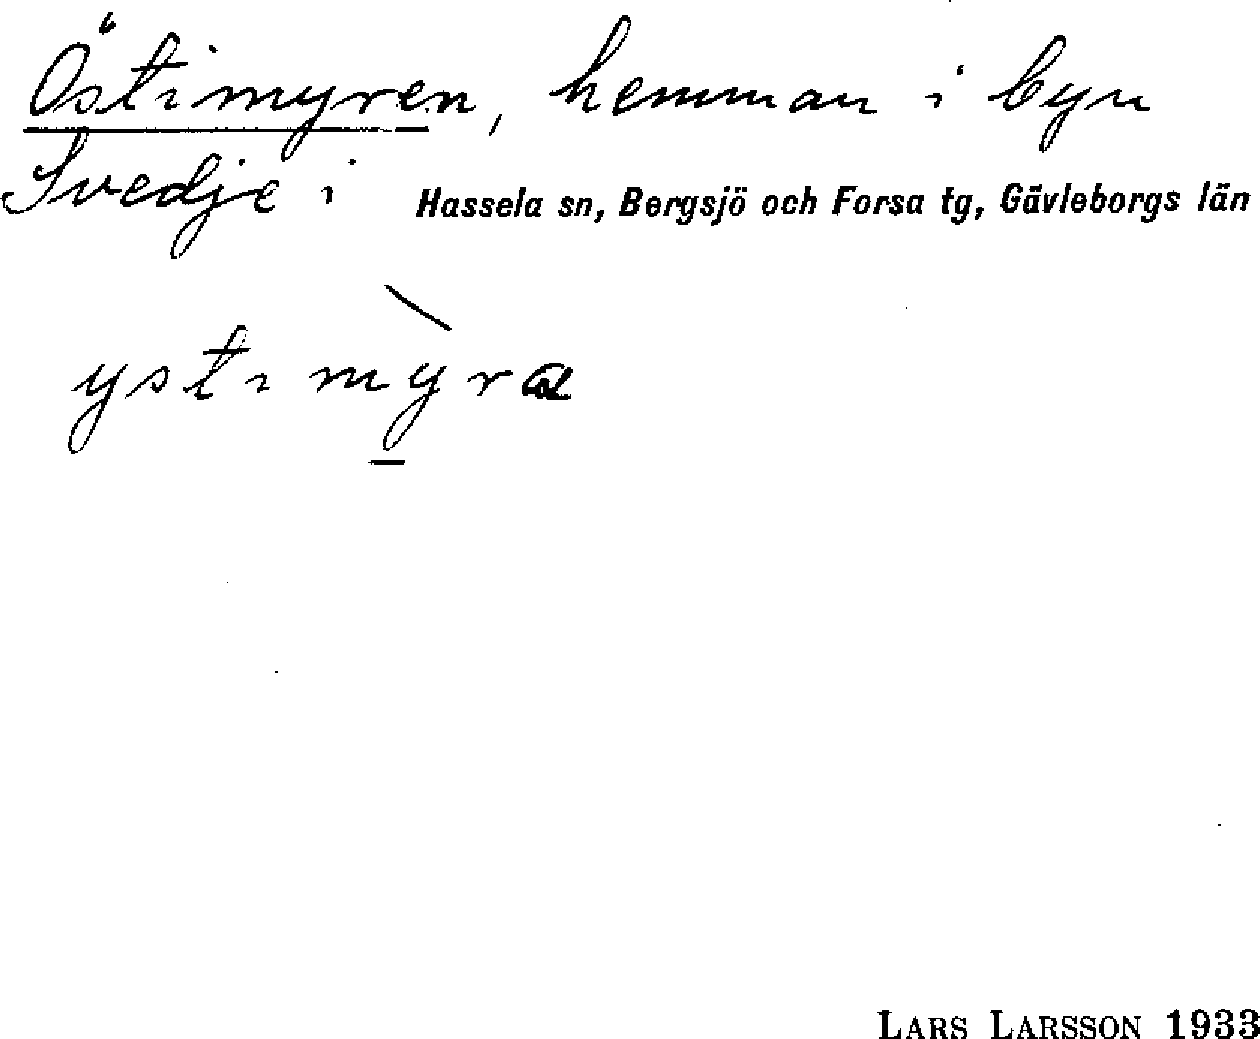 Östimyren, hemman i byn
Svedje i Hassela sn, Bergsjö och Forsa tg, Gävleborgs län
ysti mỳ̱ra
LARS LARSSON 1933